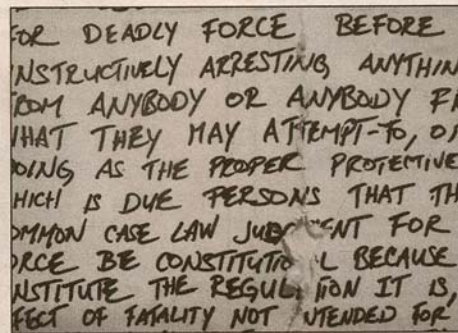 FOR DEADLY FORCE BEFORE
INSTRUCTIVELY ARRESTING ANYTHIN
ROM ANYBODY OR ANYBODY FR
HAT THEY MAY ATTEMPT-TO, O
OING AS THE PROPER PROTECTIVE
HICH IS DUE PERSONS THAT TH
OMMON CASE LAW JUD NT FOR
RCE BE CONSTITUTIO L BECAUSE
NSTITUTE THE REGUL TION IT IS,
FECT OF FATALITY NOT NTENDED FOR